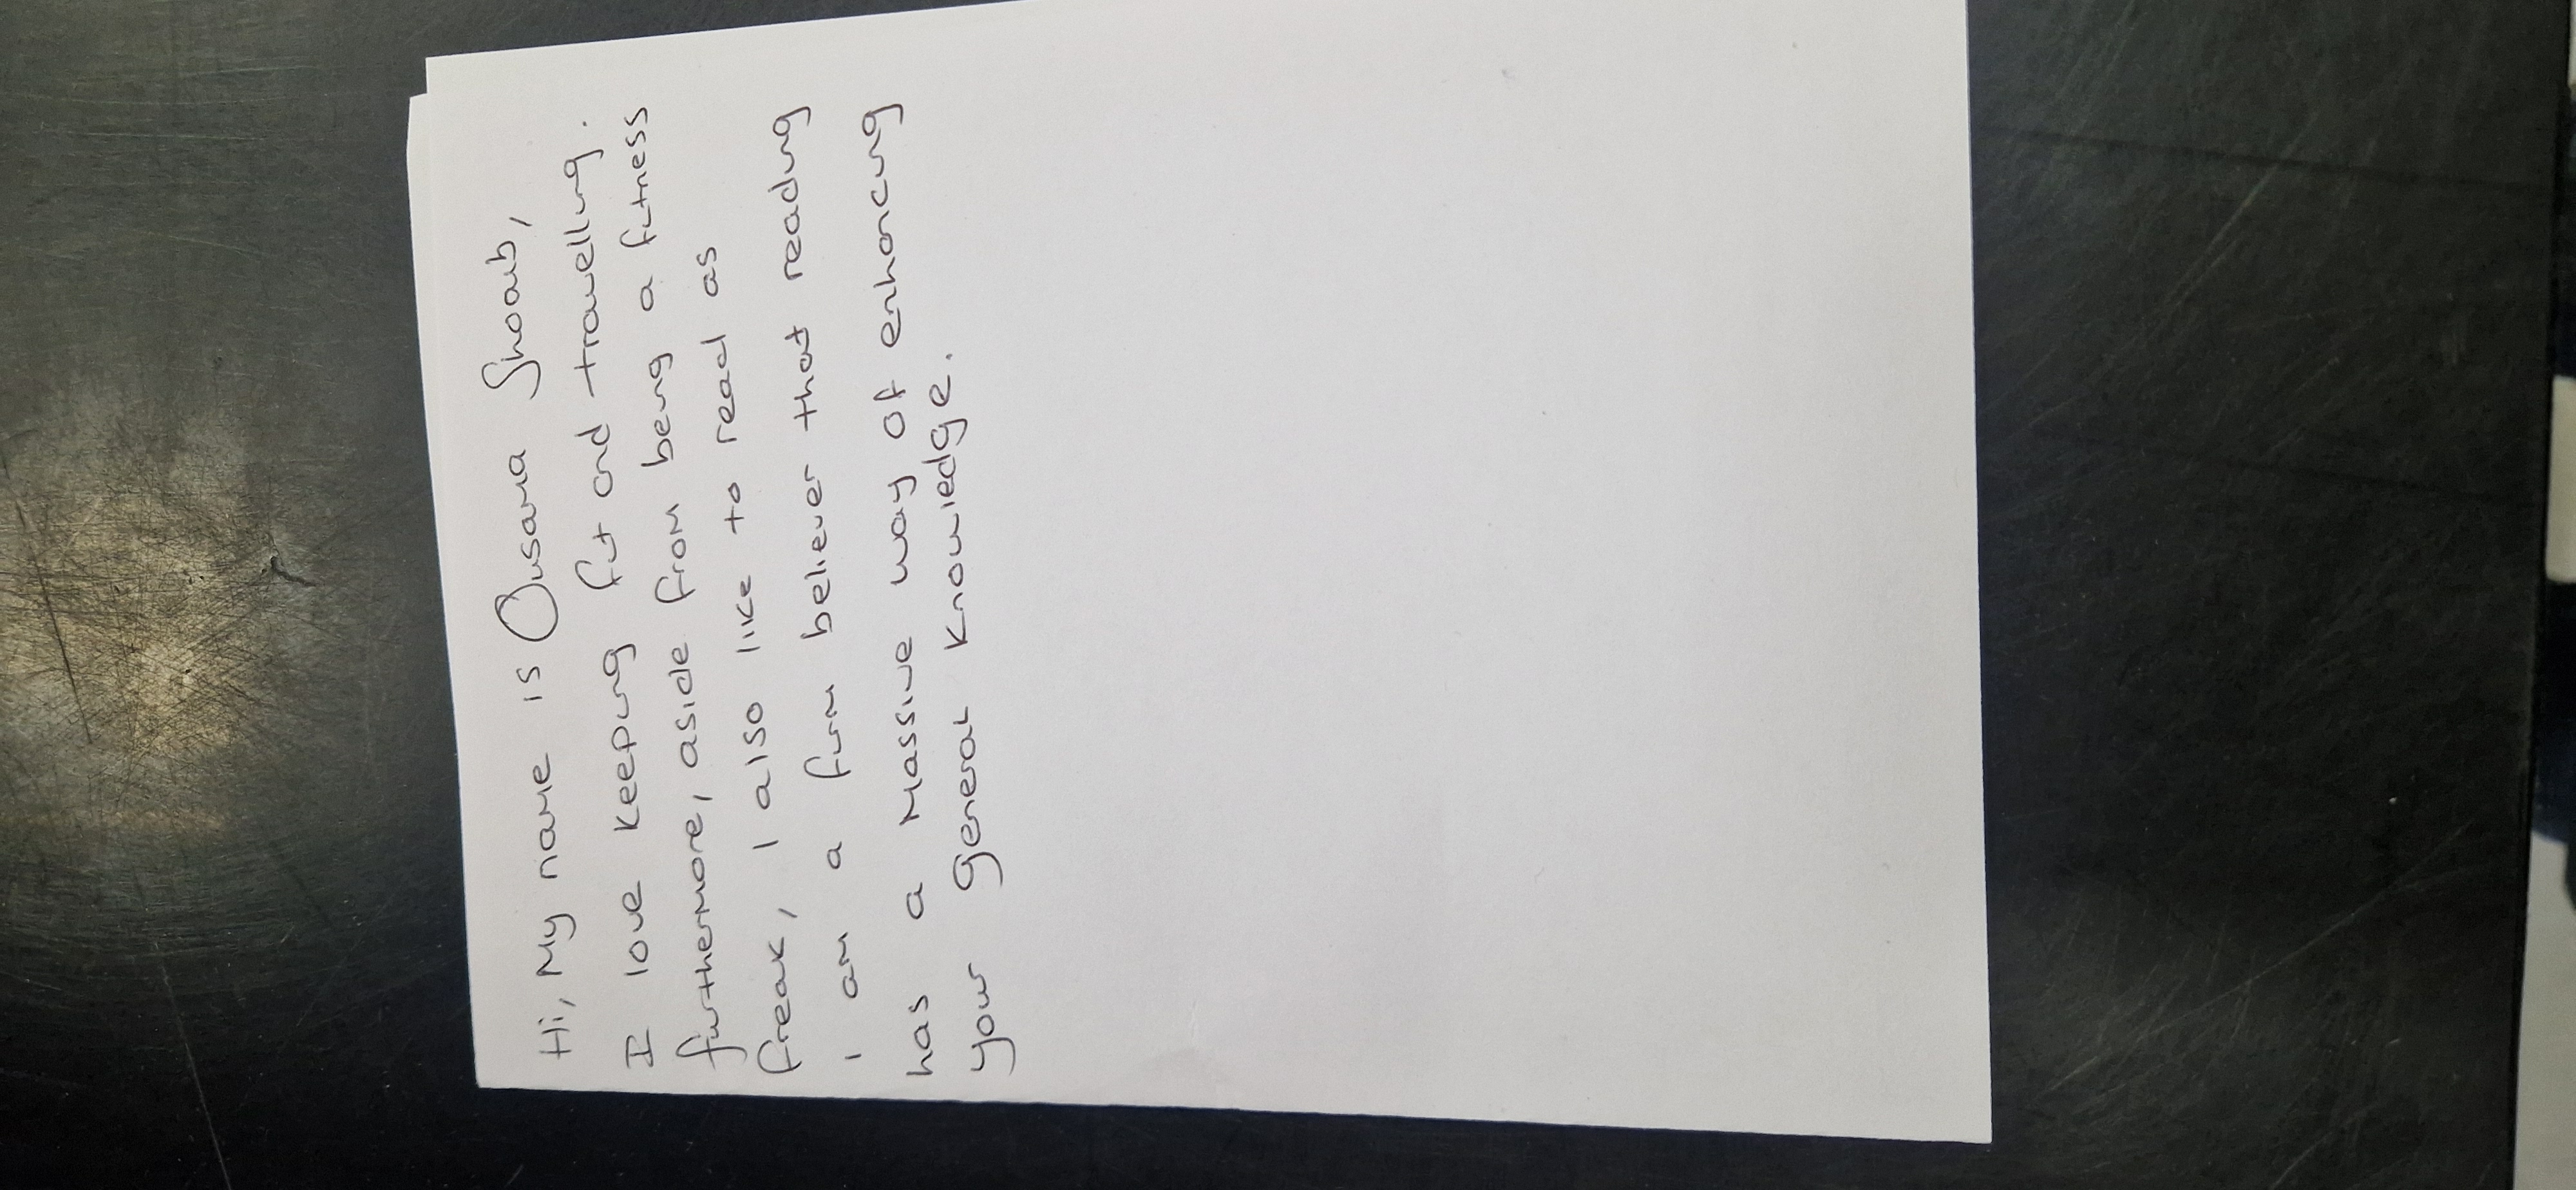 Hi, My name is Ousama Shoaib,
I love keeping fit and travelling.
furthermore, aside from being a fitness
freak, I also like to read as
I am a firm believer that reading
has a massive way of enhancing
your general knowledge.